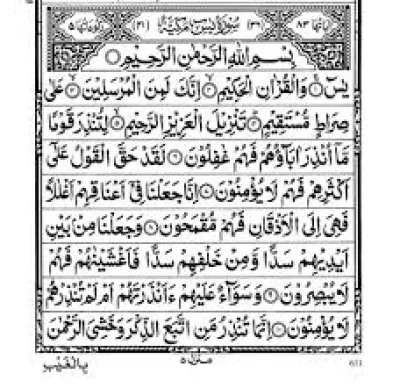 اٰیَاتُہَا ۸۳ (۳۶) سُوْرَۃُ یٰسٓ مَکِّیَّۃٌ (۴۱) رُکُوْعَاتُہَا ۵
بِسْمِ اللّٰهِ الرَّحْمٰنِ الرَّحِیْمِ
یٰسٓ ۚ وَالْقُرْاٰنِ الْحَكِیْمِ ۙ اِنَّكَ لَمِنَ الْمُرْسَلِیْنَ ۙ عَلٰی
صِرَاطٍ مُّسْتَقِیْمٍ ؕ تَنْزِیْلَ الْعَزِیْزِ الرَّحِیْمِ ۙ لِتُنْذِرَ قَوْمًا
مَّاۤ اُنْذِرَ اٰبَآؤُهُمْ فَهُمْ غٰفِلُوْنَ ۞ لَقَدْ حَقَّ الْقَوْلُ عَلٰۤی
اَكْثَرِهِمْ فَهُمْ لَا یُؤْمِنُوْنَ ۞ اِنَّا جَعَلْنَا فِیْۤ اَعْنَاقِهِمْ اَغْلٰلًا
فَهِیَ اِلَی الْاَذْقَانِ فَهُمْ مُّقْمَحُوْنَ ۞ وَجَعَلْنَا مِنْۢ بَیْنِ
اَیْدِیْهِمْ سَدًّا وَّمِنْ خَلْفِهِمْ سَدًّا فَاَغْشَیْنٰهُمْ فَهُمْ
لَا یُبْصِرُوْنَ ۞ وَسَوَآءٌ عَلَیْهِمْ ءَاَنْذَرْتَهُمْ اَمْ لَمْ تُنْذِرْهُمْ
لَا یُؤْمِنُوْنَ ۞ اِنَّمَا تُنْذِرُ مَنِ اتَّبَعَ الذِّكْرَ وَخَشِیَ الرَّحْمٰنَ
بِالْغَیْبِ
منزل ۵